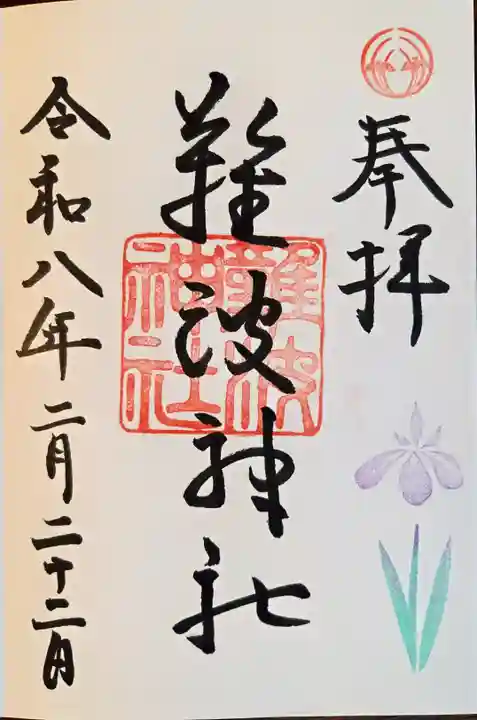 奉拝
難波神社
難波
神社
令和八年二月二十二日